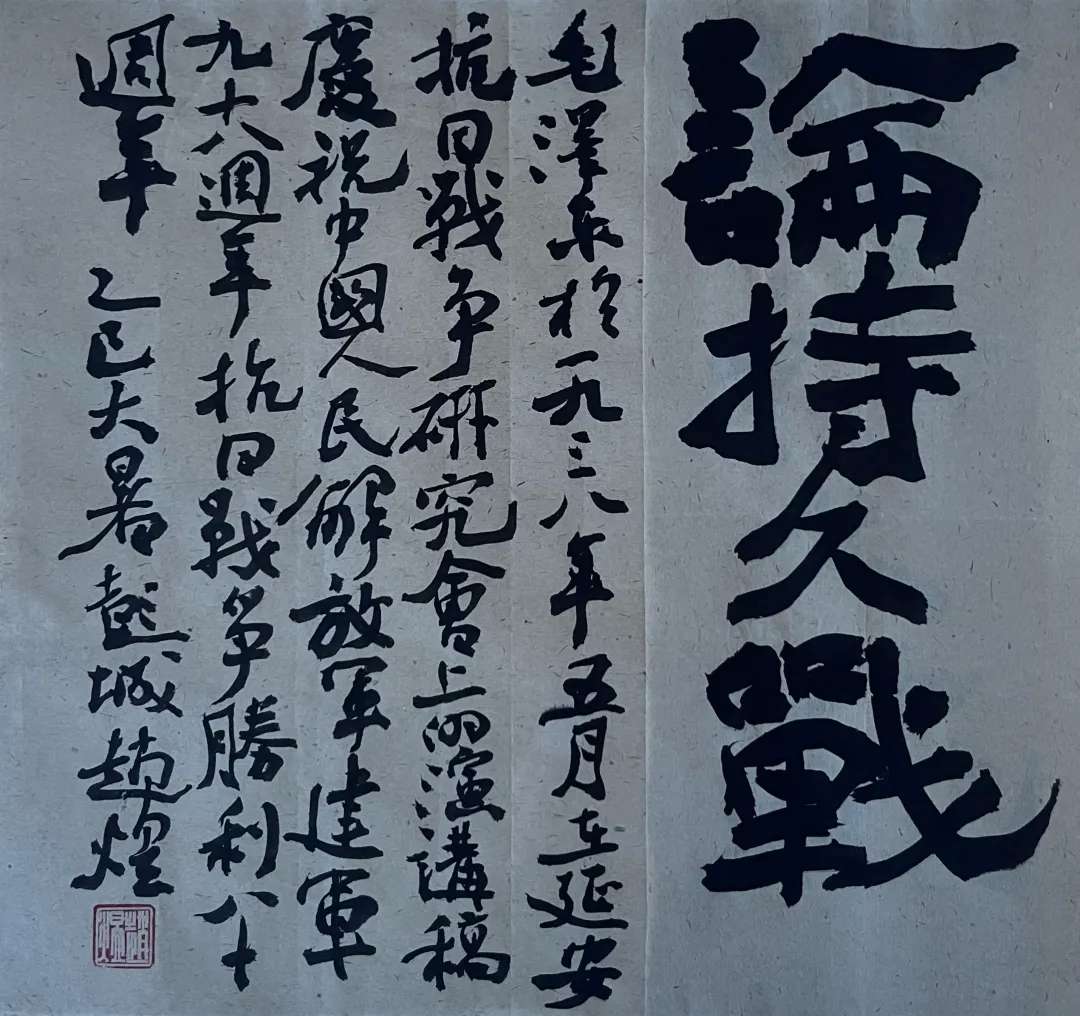 論持久戰
毛澤東於一九三八年五月在延安
抗日戰争研究會上的演講稿
慶祝中國人民解放軍建軍
九十八週年抗日戰爭勝利八十
週年 乙巳大暑彭城趙煌